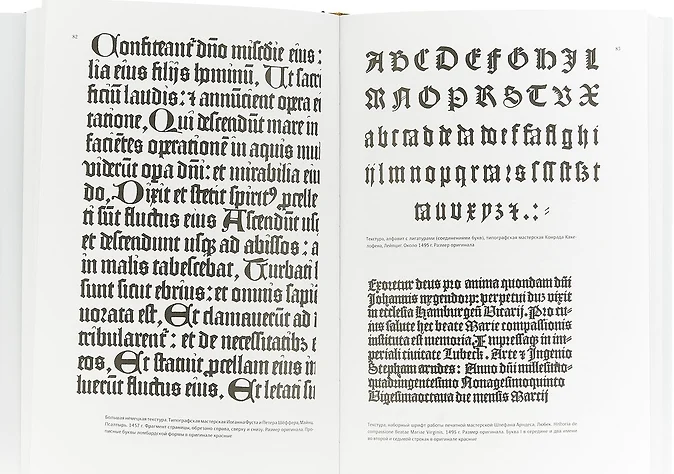 82
Confiteant᷑ dño miſcđie eius:
lia eius filijs hominū, Ut ſacri
ficiū laudis: ⁊ annūcient opera ei
tatione, Qui deſcendūt mare in
faciētes operationē in aquis mul
viderūt opa dñi: et mirabilia eiu
do, Dixit et ſtetit ſpiritꝰ ꝓcelle
ti ſūt fluctus eius Aſcendūt uſq
et deſcendunt uſqꝫ ad abiſſos: a
in malis tabeſcebat, Turbati ſ
ſunt ſicut ebrius: et omnis ſapi
uorata eſt, Et clamauerūt ad
tribularent᷑: et de neceſſitatibꝫ e
eos, Et ſtatuit ꝓcellam eius in
luerūt fluctus eius, Et letati ſu
Большая немецкая текстура. Типографская мастерская Иоганна Фуста и Петера Шёффера, Майнц.
Псалтырь. 1457 г. Фрагмент страницы, обрезано справа, сверху и снизу. Размер оригинала. Про-
писные буквы ломбардской формы в оригинале красные
83
A B C D E F G H I L
M N O P R S T V X
Текстура, алфавит с лигатурами (соединениями букв), типографская мастерская Конрада Каке-
лофена, Лейпциг. Около 1495 г. Размер оригинала
Exoretur deus pro anima quondam dñi
Johannis nygendorp: perpetui duꝫ vixit
in eccleſia Hamburgeñ Vicarij. Pro cu⸗
ius ſalute hec beate Marie compaſſionis
inſtituta eſt memoria, Impreſſaqꝫ in im⸗
periali ciuitate Lubeck. Arte ⁊ Ingenio
Stephani arndes: Anno dñi milleſimo⸗
quadringenteſimo Nonageſimoquinto
Vigeſimaoctaua die menſis Marcij
Текстура, наборный шрифт работы печатной мастерской Штефана Арндеса, Любек. Historia de
compassione Beatae Mariae Virginis. 1495 г. Размер оригинала. Буква I в середине и два имени
во второй и седьмой строках в оригинале красные